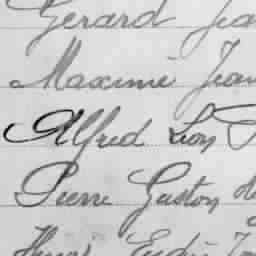 Gérard Jea
Maxime Jean
Alfred Léon
Pierre Gaston
Henri